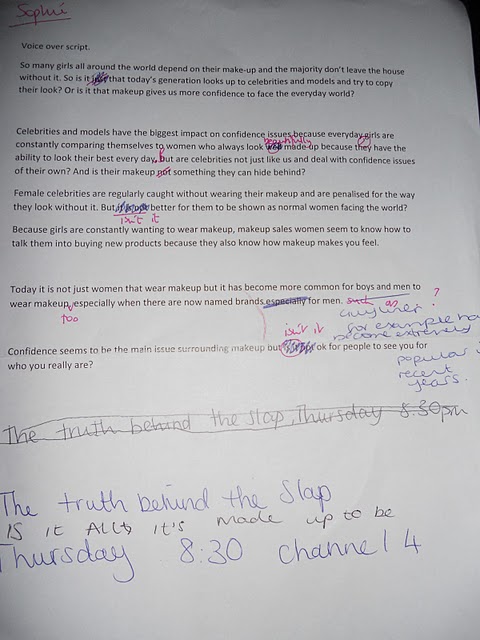 Sophie
Voice over script.
So many girls all around the world depend on their make-up and the majority don't leave the house
without it. So is it that today's generation looks up to celebrities and models and try to copy
their look? Or is it that makeup gives us more confidence to face the everyday world?
Celebrities and models have the biggest impact on confidence issues because everyday girls are
beautifully
constantly comparing themselves to women who always look made-up because they have the
ability to look their best every day, but are celebrities not just like us and deal with confidence issues
of their own? And is their makeup not something they can hide behind?
Female celebrities are regularly caught without wearing their makeup and are penalised for the way
they look without it. But, better for them to be shown as normal women facing the world?
isn't it
Because girls are constantly wanting to wear makeup, makeup sales women seem to know how to
talk them into buying new products because they also know how makeup makes you feel.
Today it is not just women that wear makeup but it has become more common for boys and men to
wear makeup, especially when there are now named brands especially for men. such as ?
too
guyliner
for example ha
become extremely
popular i
recent
years.
isn't it
Confidence seems to be the main issue surrounding makeup but ok for people to see you for
who you really are?
The truth behind the slap, Thursday 8.30pm
The truth behind the Slap
IS it All it's made up to be
Thursday 8:30 channel 4